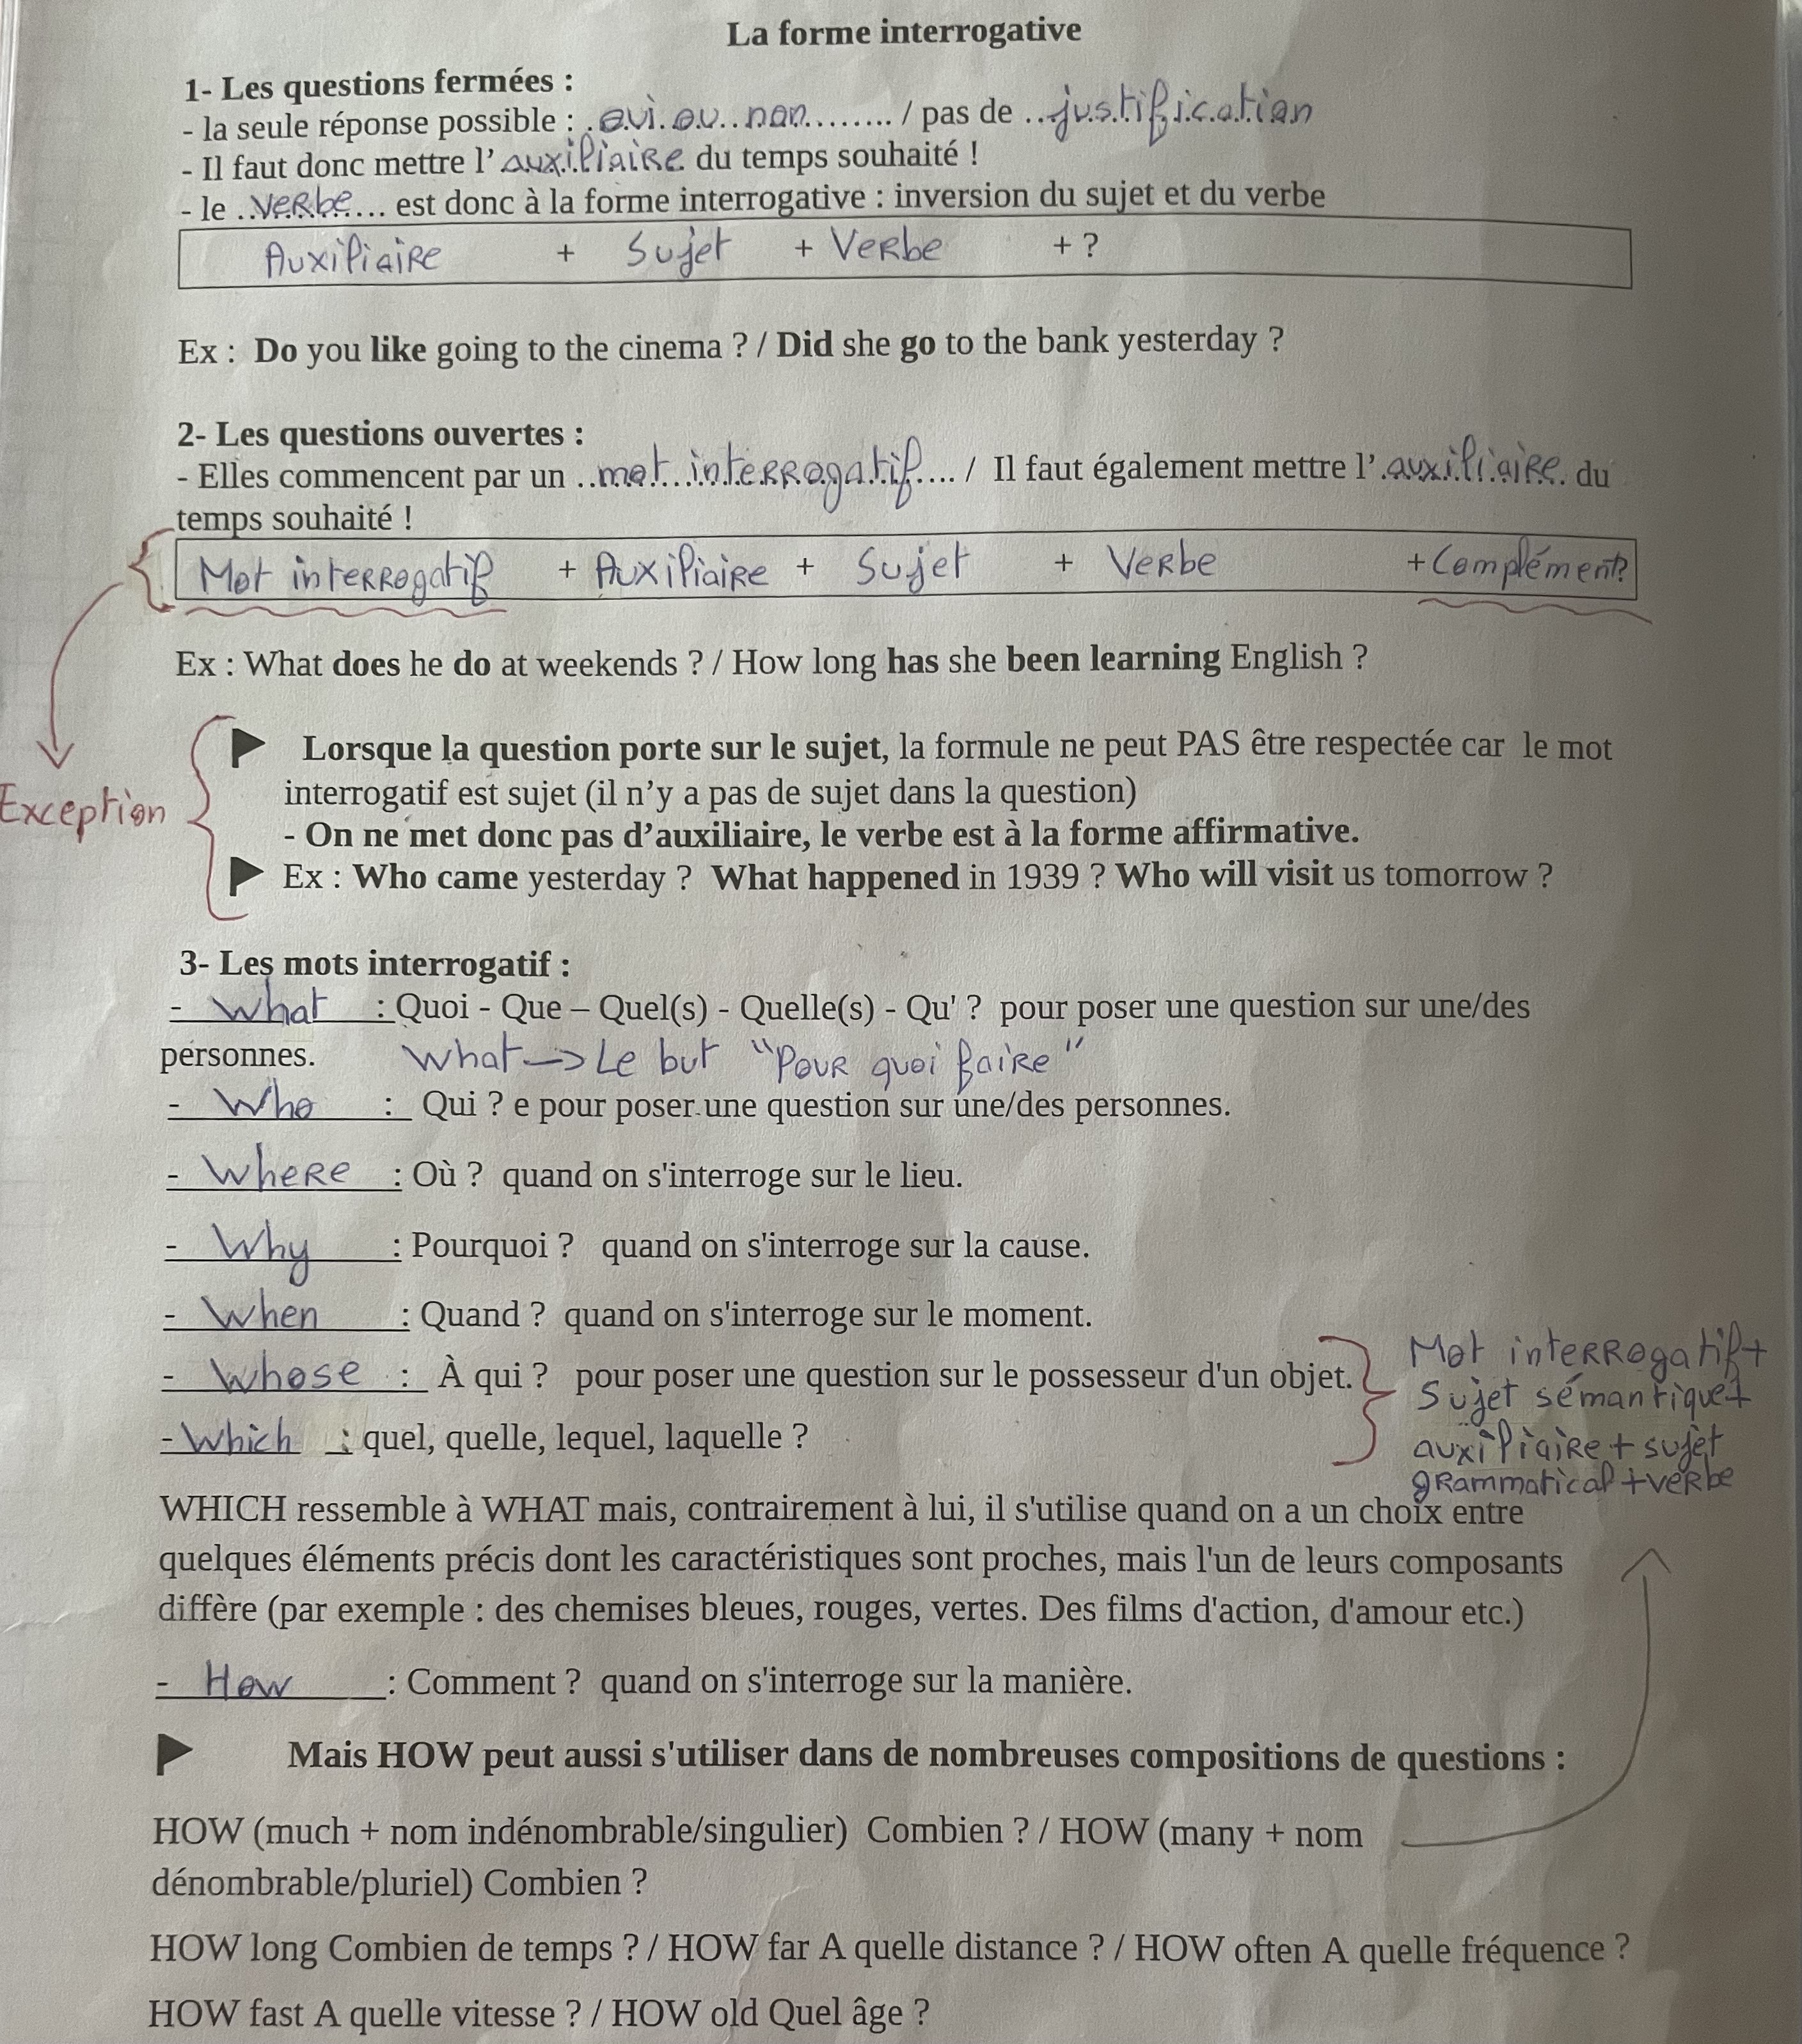 La forme interrogative
1- Les questions fermées :
- la seule réponse possible : oui ou non / pas de justification
- Il faut donc mettre l'auxiliaire du temps souhaité !
- le verbe est donc à la forme interrogative : inversion du sujet et du verbe
Auxiliaire + Sujet + Verbe + ?
Ex : Do you like going to the cinema ? / Did she go to the bank yesterday ?
2- Les questions ouvertes :
- Elles commencent par un mot interrogatif / Il faut également mettre l'auxiliaire du
temps souhaité !
Mot interrogatif + Auxiliaire + Sujet + Verbe + Complément?
Ex : What does he do at weekends ? / How long has she been learning English ?
Lorsque la question porte sur le sujet, la formule ne peut PAS être respectée car le mot
interrogatif est sujet (il n'y a pas de sujet dans la question)
Exception
- On ne met donc pas d'auxiliaire, le verbe est à la forme affirmative.
Ex : Who came yesterday ? What happened in 1939 ? Who will visit us tomorrow ?
3- Les mots interrogatif :
- What : Quoi - Que – Quel(s) - Quelle(s) - Qu' ? pour poser une question sur une/des
personnes. What -> Le but "Pour quoi faire"
- Who : Qui ? e pour poser une question sur une/des personnes.
- Where : Où ? quand on s'interroge sur le lieu.
- Why : Pourquoi ? quand on s'interroge sur la cause.
- When : Quand ? quand on s'interroge sur le moment.
- Whose : À qui ? pour poser une question sur le possesseur d'un objet.
- Which : quel, quelle, lequel, laquelle ?
Mot interrogatif +
Sujet sémantique +
auxiliaire + sujet
grammatical + verbe
WHICH ressemble à WHAT mais, contrairement à lui, il s'utilise quand on a un choix entre
quelques éléments précis dont les caractéristiques sont proches, mais l'un de leurs composants
diffère (par exemple : des chemises bleues, rouges, vertes. Des films d'action, d'amour etc.)
- How : Comment ? quand on s'interroge sur la manière.
Mais HOW peut aussi s'utiliser dans de nombreuses compositions de questions :
HOW (much + nom indénombrable/singulier) Combien ? / HOW (many + nom
dénombrable/pluriel) Combien ?
HOW long Combien de temps ? / HOW far A quelle distance ? / HOW often A quelle fréquence ?
HOW fast A quelle vitesse ? / HOW old Quel âge ?